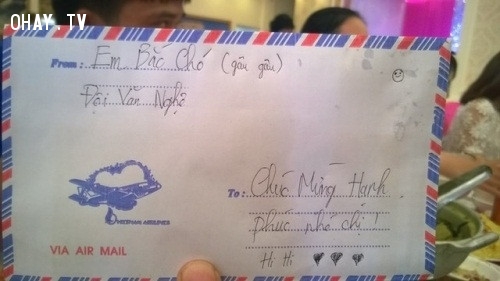 OHAY.TV
From: Em Bắc Chó (gâu gâu)
Đội Văn Nghệ
To: Chúc Mừng Hạnh
phúc nhé chị!
Hi Hi
VIETNAM AIRLINES
VIA AIR MAIL